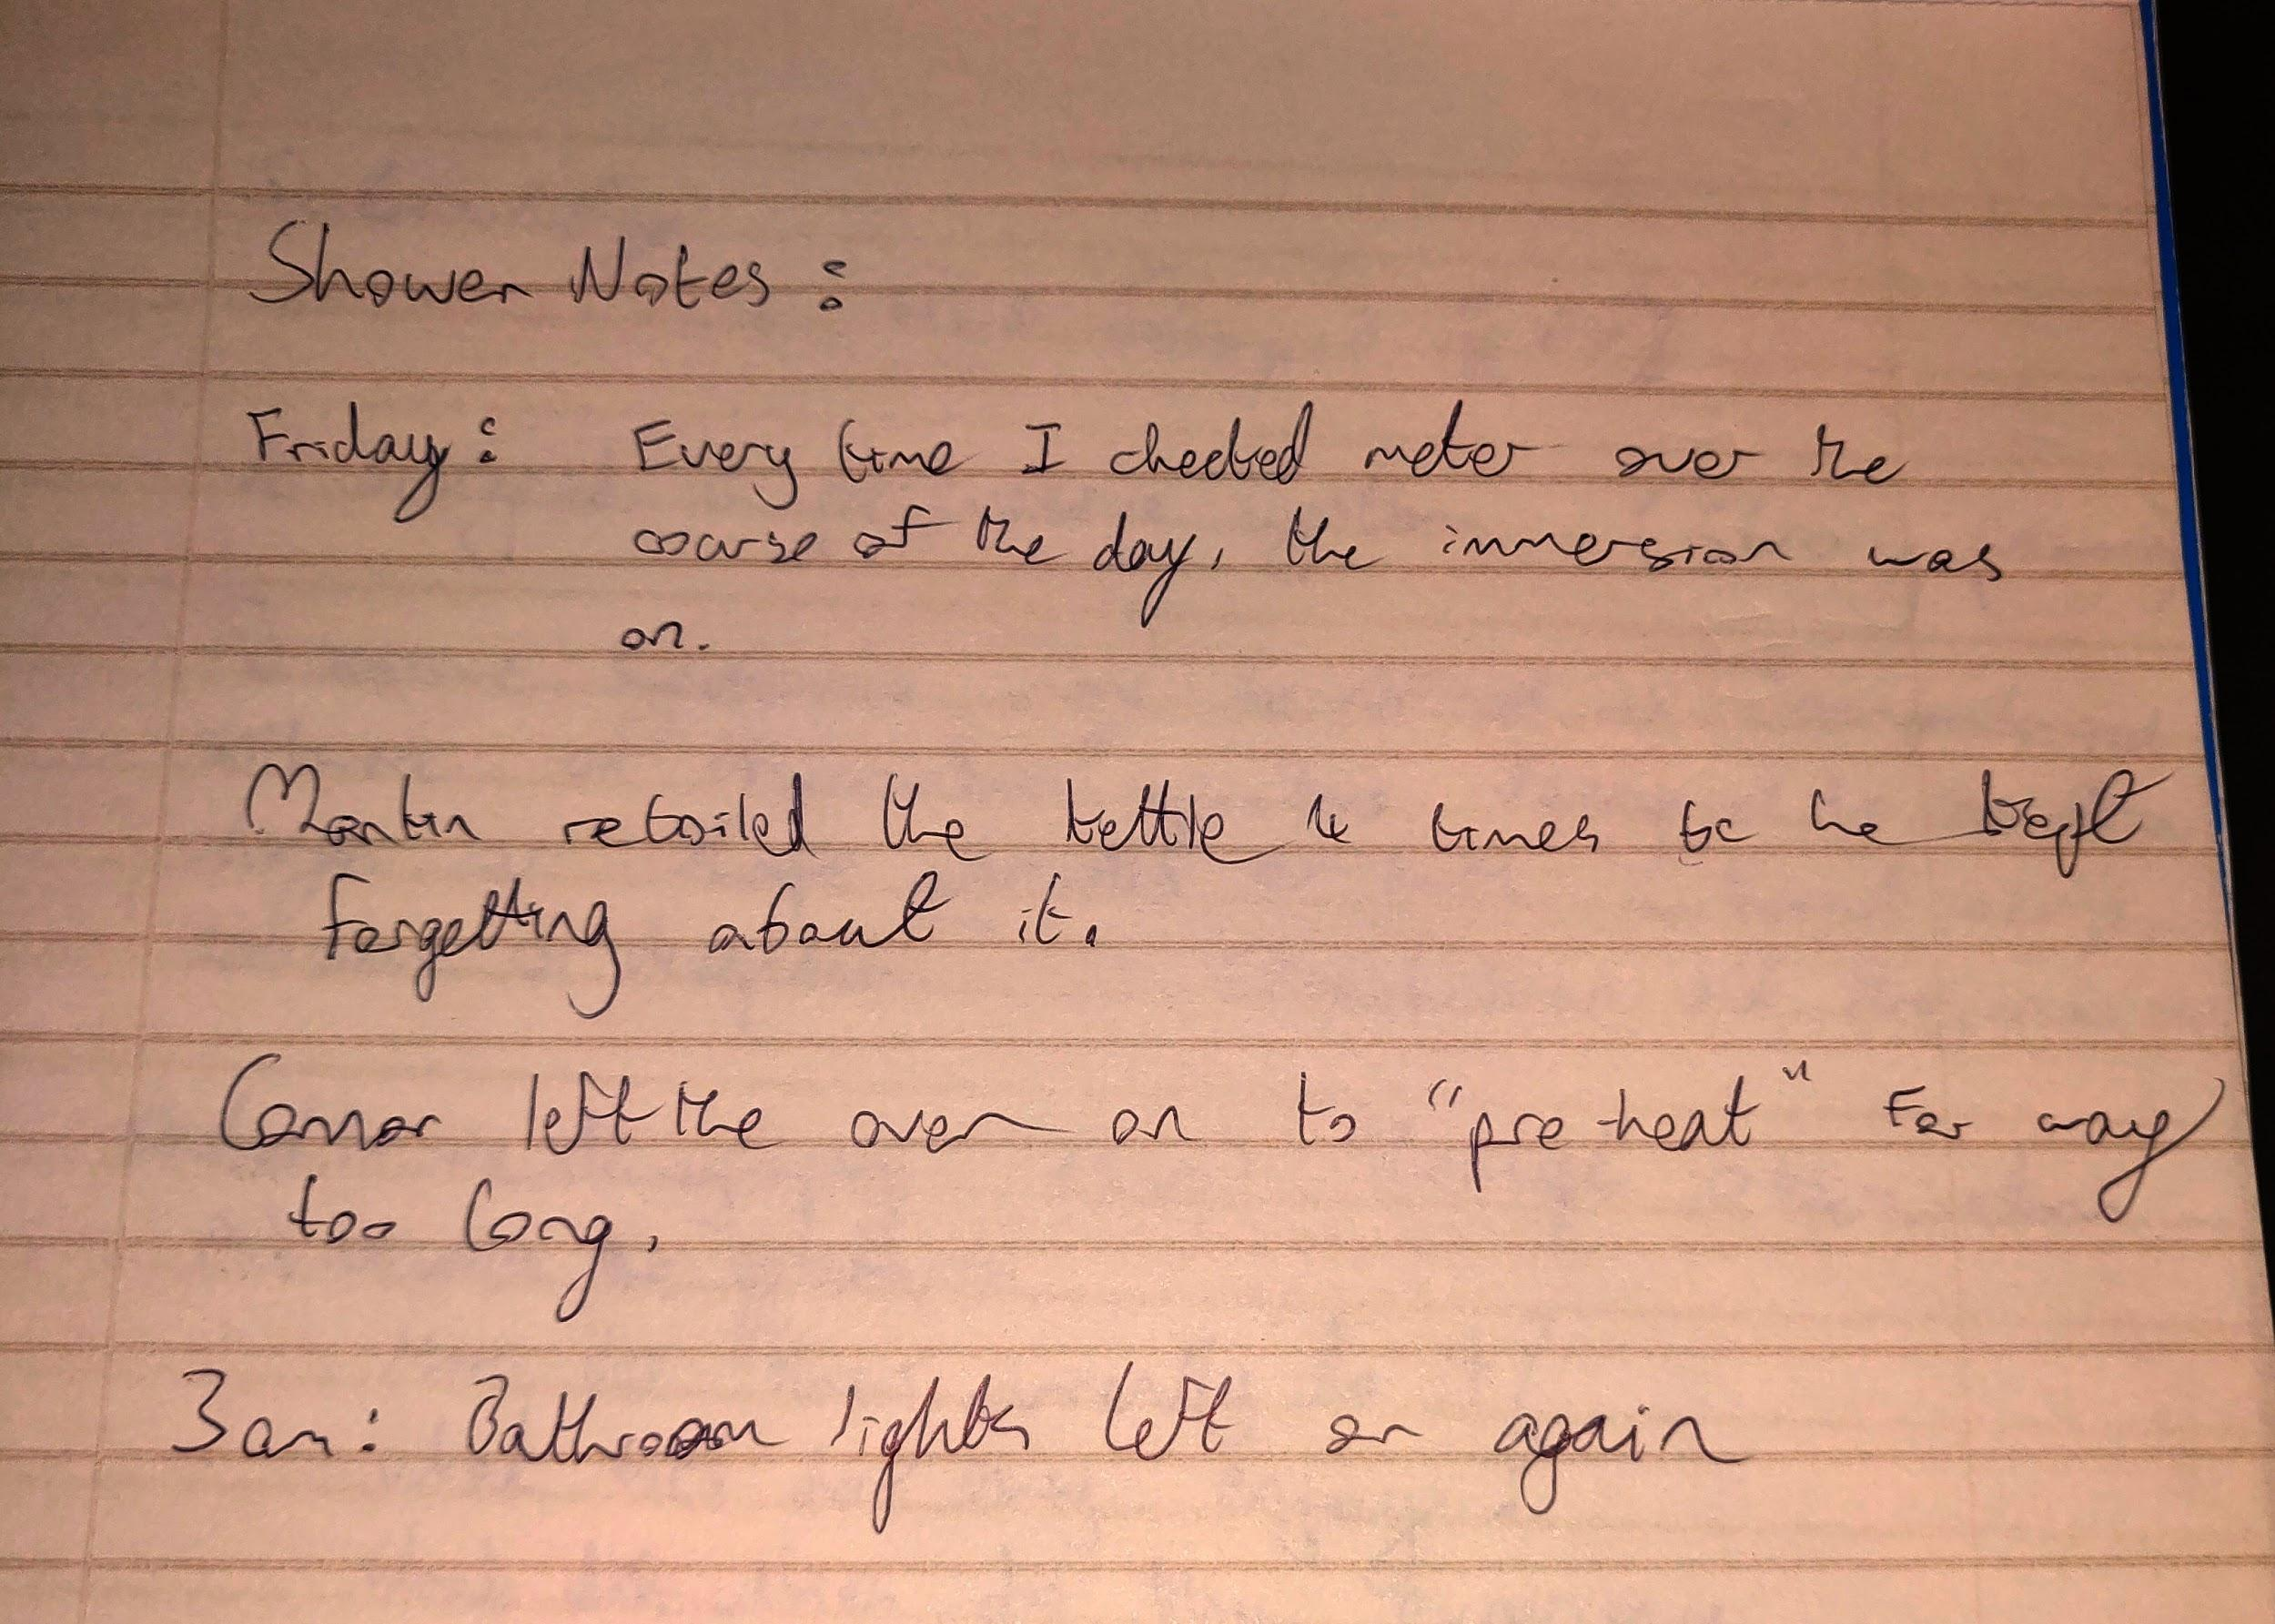 Shower Notes:
Friday: Every time I checked meter over the
course of the day, the immersion was
on.
Martin reboiled the kettle 4 times bc he kept
forgetting about it.
Connor left the oven on to "pre-heat" for way
too long.
3am: Bathroom lights left on again